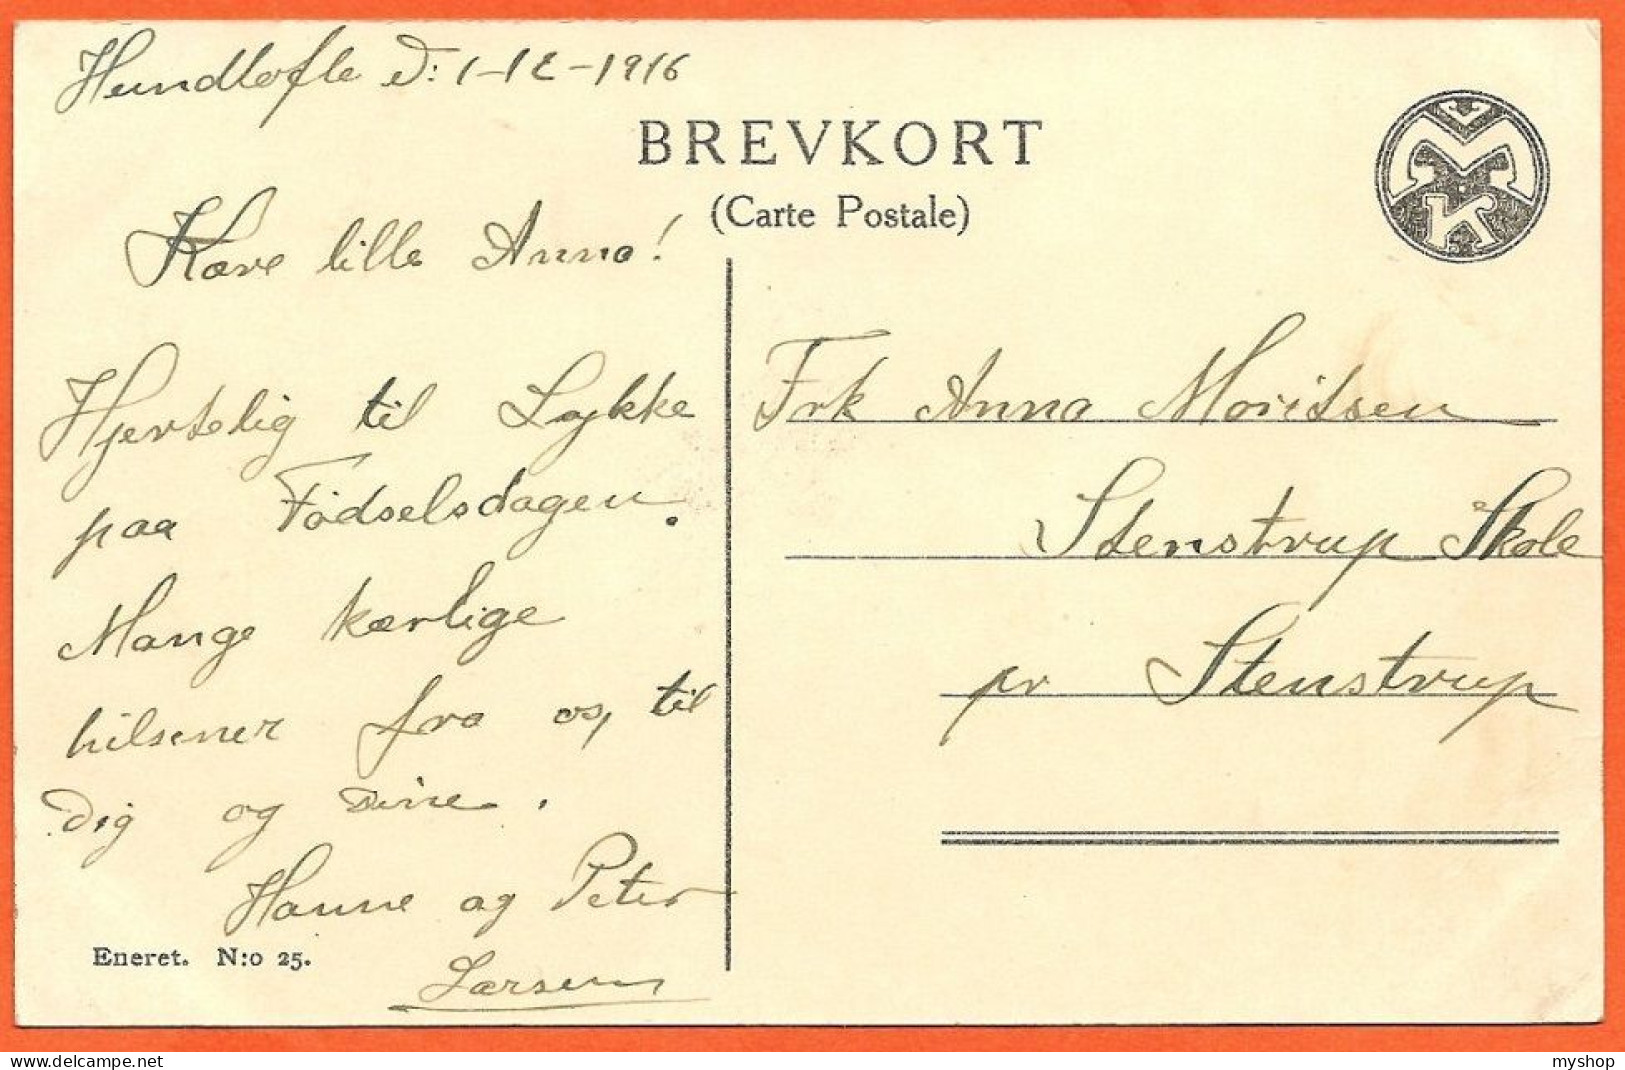 Hundtofte d: 1-12-1916
BREVKORT
(Carte Postale)
Kære lille Anna!
Hjertelig til Lykke
paa Fødselsdagen.
Mange kærlige
hilsener fra os, til
Dig og Dine.
Hanne og Peter
Larsen
Eneret. N:o 25.
Frk Anna Moritsen
Stenstrup Skole
pr Stenstrup
delcampe.net
myshop